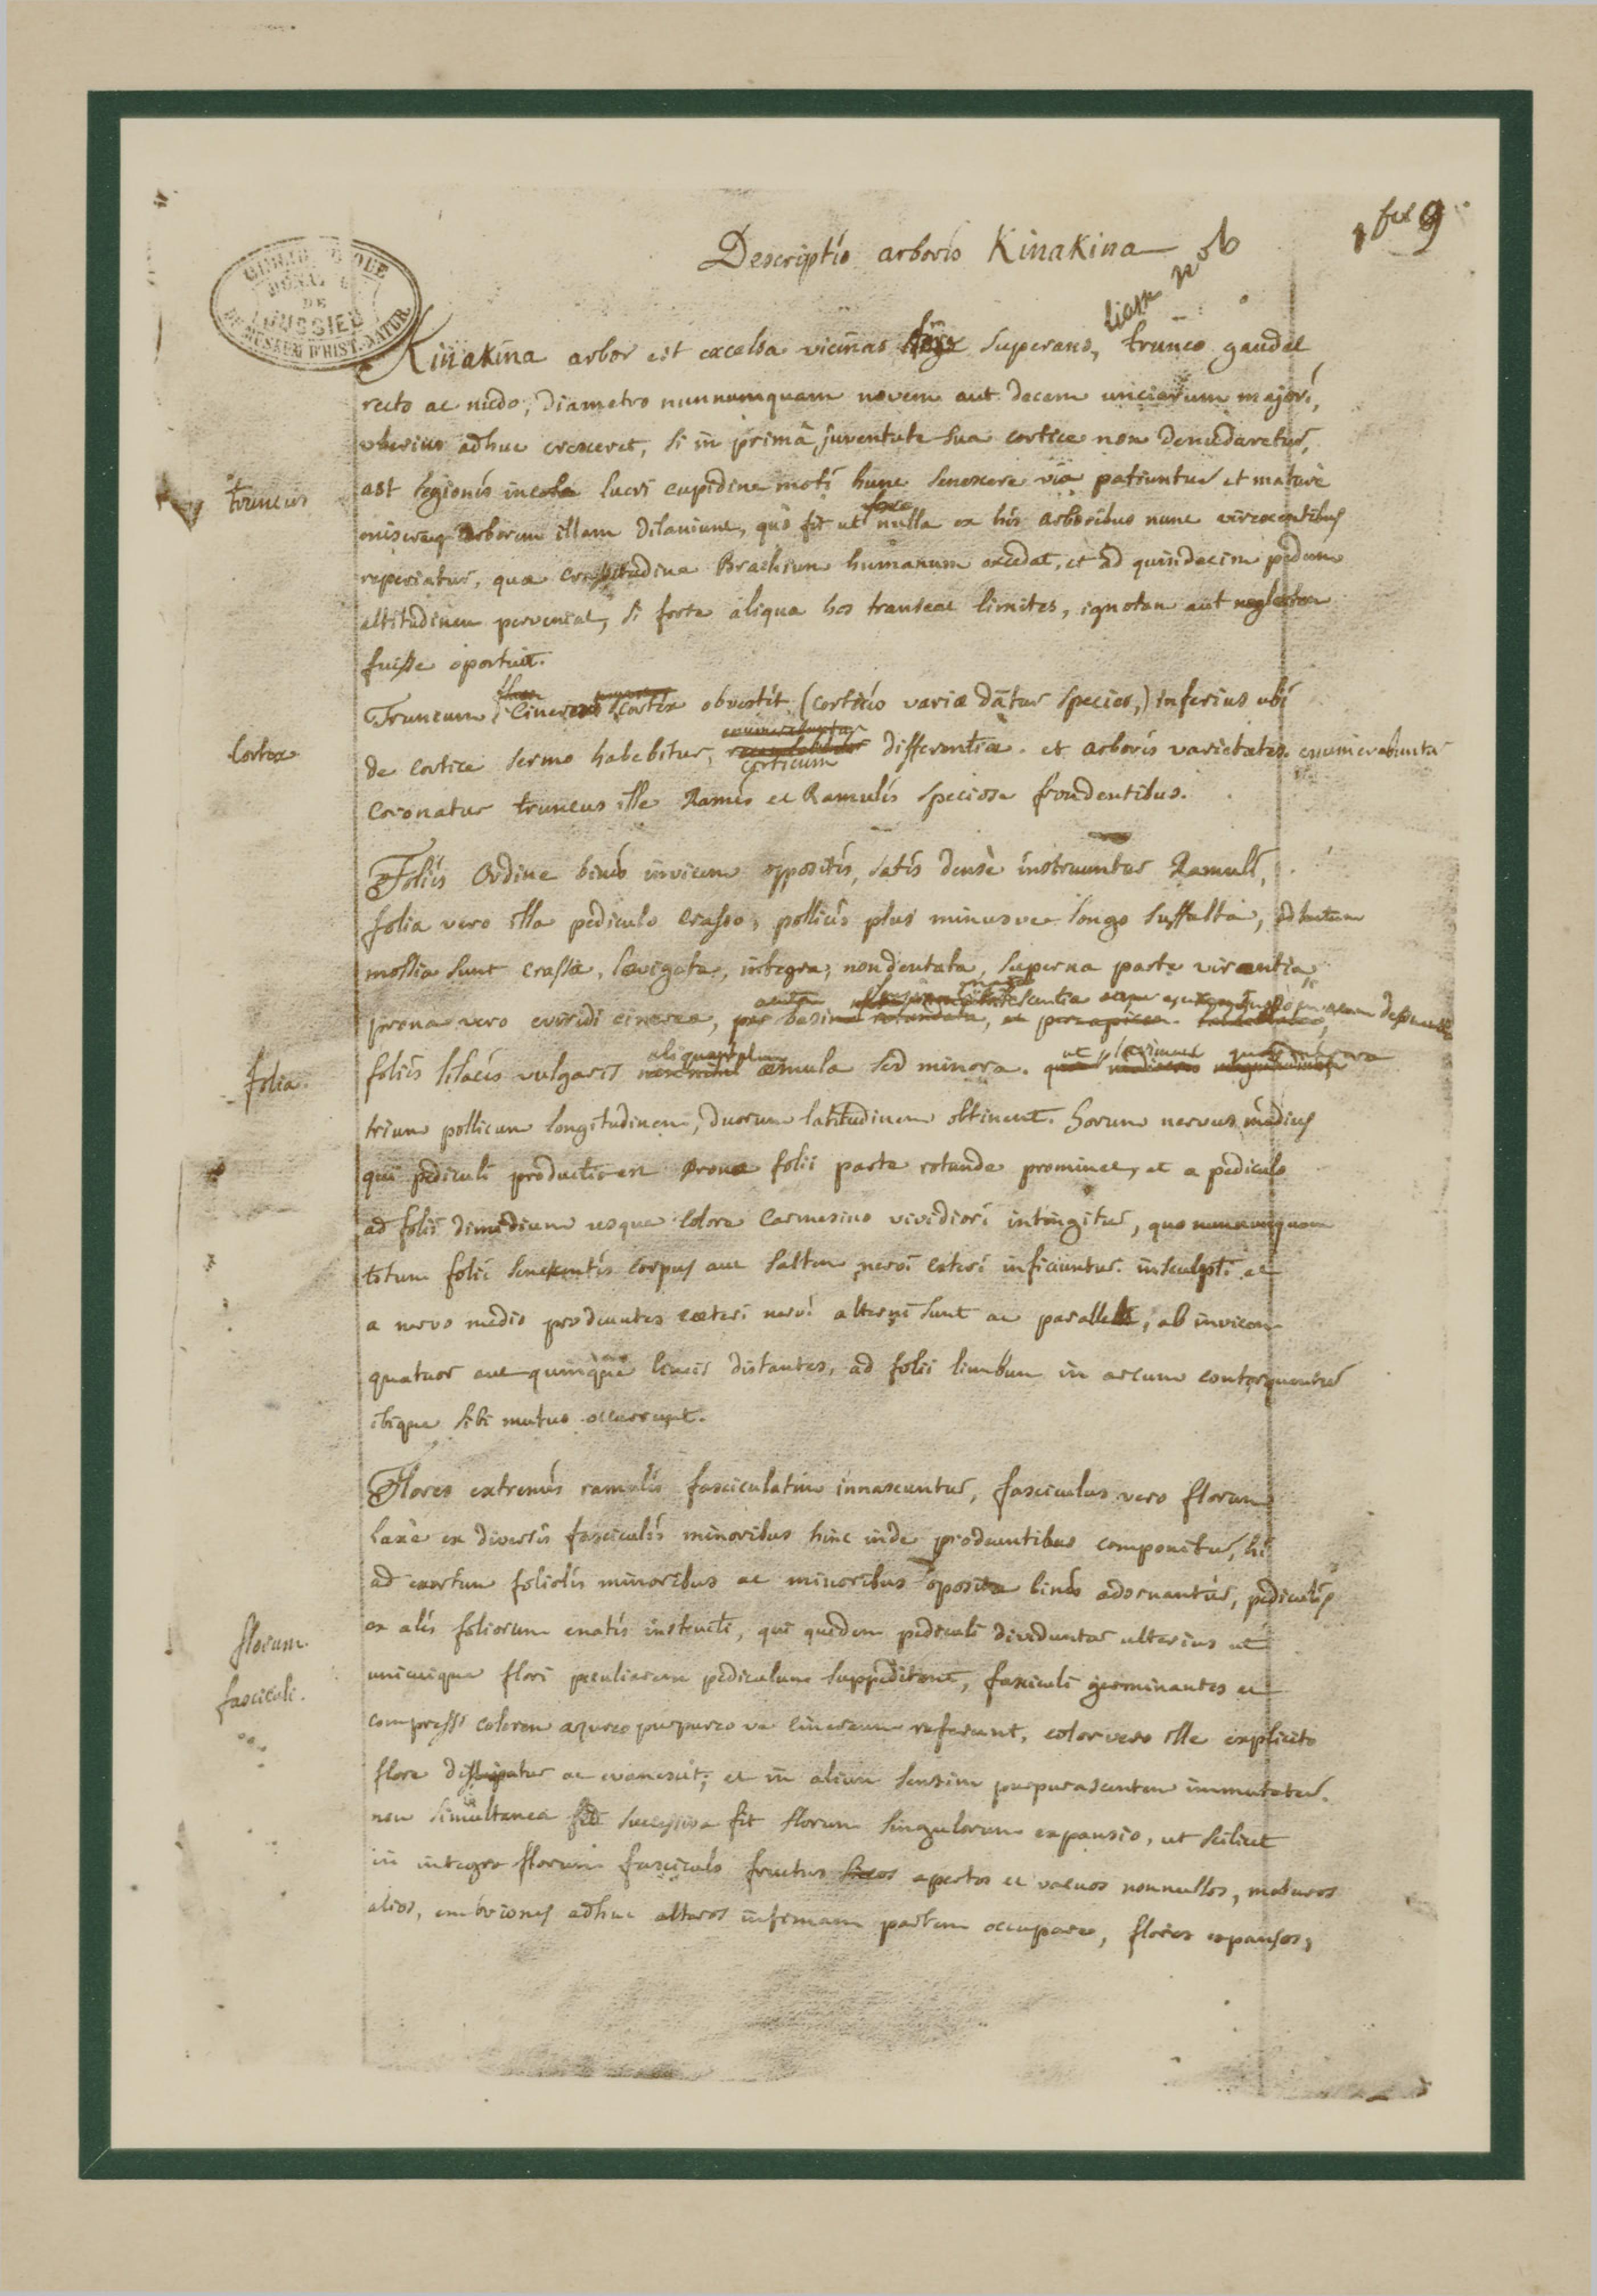 1 fol 9
Descriptio arboris KinaKina
liasse n° 36
BIBLIOTHEQUE
DE
JUSSIEU
DU MUSEUM D'HIST. NATUR.
KinaKina arbor est excelsa vicinas superans, trunco gaudet
recto ac nudo, diametro nunnumquam novem aut decem unciarum majori,
uberius adhuc cresceret, si in primâ juventute sua cortice non denudaretur,
truncus
ast regionis incolæ lucri cupidine moti hunc senescere vix patiuntur et maturè
arborem illam dilaniunt, quò fit ut fere nulla ex his arboribus nunc virescentibus
reperiatur, quæ crassitudine Brachium humanum excedat, et ad quindecim pedum
altitudinem perveniat, si forte aliqua hos transeat limites, ignotam aut neglectam
fuisse oportuit.
Truncum cinereus cortex obvestit (corticis variæ dantur species,) inferius ubi
Cortex
de cortice sermo habebitur, corticum differentiæ et arboris varietates enumerabuntur
Coronatur truncus ille Ramis et Ramulis speciose frondentibus.
Foliis Ordine binis invicem oppositis, satis densè instruuntur Ramuli,
folia vero illa pediculo crasso, pollicis plus minusve longo suffulta,
mollia sunt crassa, lævigata, integra, non dentata, superna parte virentia
prona vero e viridi cinerea,
folia
foliis lilacis vulgaris aliquantulum æmula sed minora. ut plurimum
trium pollicum longitudinem, duorum latitudinem obtinent. horum nervus medius
qui pediculi productio est prona folii parte rotunde prominet, et a pediculo
ad folii dimidium usque colore carmesino vividiori intingitur, quo nunnunquam
totum folii senescentis corpus aut saltem nervi cæteri inficiuntur. insculpti et
a nervo medio prodeuntes cæteri nervi alterni sunt ac paralleli, ab invicem
quatuor aut quinque lineis distantes, ad folii limbum in arcum contorquentur
ibique sibi mutuo occurrunt.
Flores extremis ramulis fasciculatim innascuntur, fasciculus vero florum
laxè ex diversis fasciculis minoribus hinc inde prodeuntibus componitur, hi
ad exortum foliolis minoribus ac minoribus oposite binis adornantur, pediculis
florum
ex alis foliorum enatis instructi, qui quidem pediculi dividuntur ulterius ut
fasciculi.
unicuique flori peculiarem pediculum suppeditent, fasciculi germinantes et
compressi colorem azureo purpureo ve cinereum referunt, color vero ille explicito
flore dissipatur ac evanescit; et in alium sensim purpurascentem immutatur.
non simultanea sed successiva fit florum singulorum expansio, ut scilicet
in integro florum fasciculo fructus siccos apertos et vacuos nonnullos, maturos
alios, embriones adhuc alteros infimam partem occupare, flores expansos,